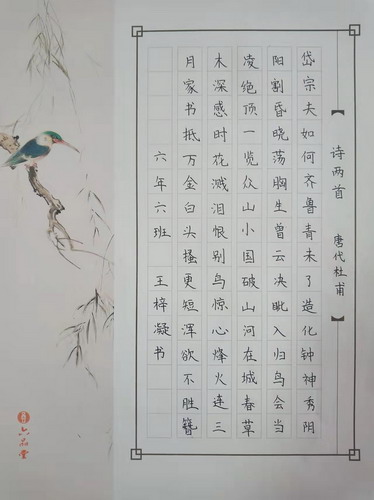 【诗两首 唐代杜甫】
岱宗夫如何齐鲁青未了造化钟神秀阴
阳割昏晓荡胸生曾云决眦入归鸟会当
凌绝顶一览众山小国破山河在城春草
木深感时花溅泪恨别鸟惊心烽火连三
月家书抵万金白头搔更短浑欲不胜簪
六年六班 王梓凝书
六品堂